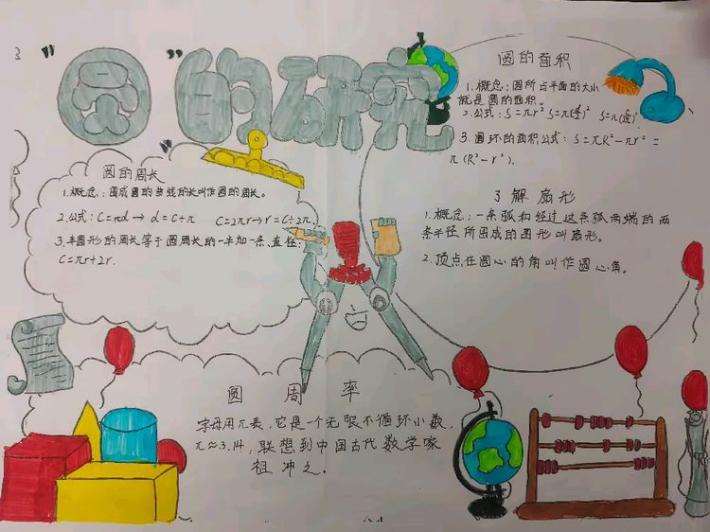 “圆”的研究
圆的周长
1.概念：围成圆的曲线的长叫作圆的周长。
2.公式：C=πd→d=C÷π C=2πr→r=C÷2π
3.半圆形的周长等于圆周长的一半加一条直径：
C=πr+2r.
圆的面积
1.概念：圆所占平面的大小
就是圆的面积。
2.公式：S=πr² S=π()² S=π()²
3.圆环的面积公式：S=πR²-πr²=
π(R²-r²).
了解扇形
1.概念：一条弧和经过这条弧两端的两
条半径所围成的图形叫扇形。
2.顶点在圆心的角叫作圆心角。
圆周率
字母用π表，它是一个无限不循环小数，
π≈3.14，联想到中国古代数学家
祖冲之。